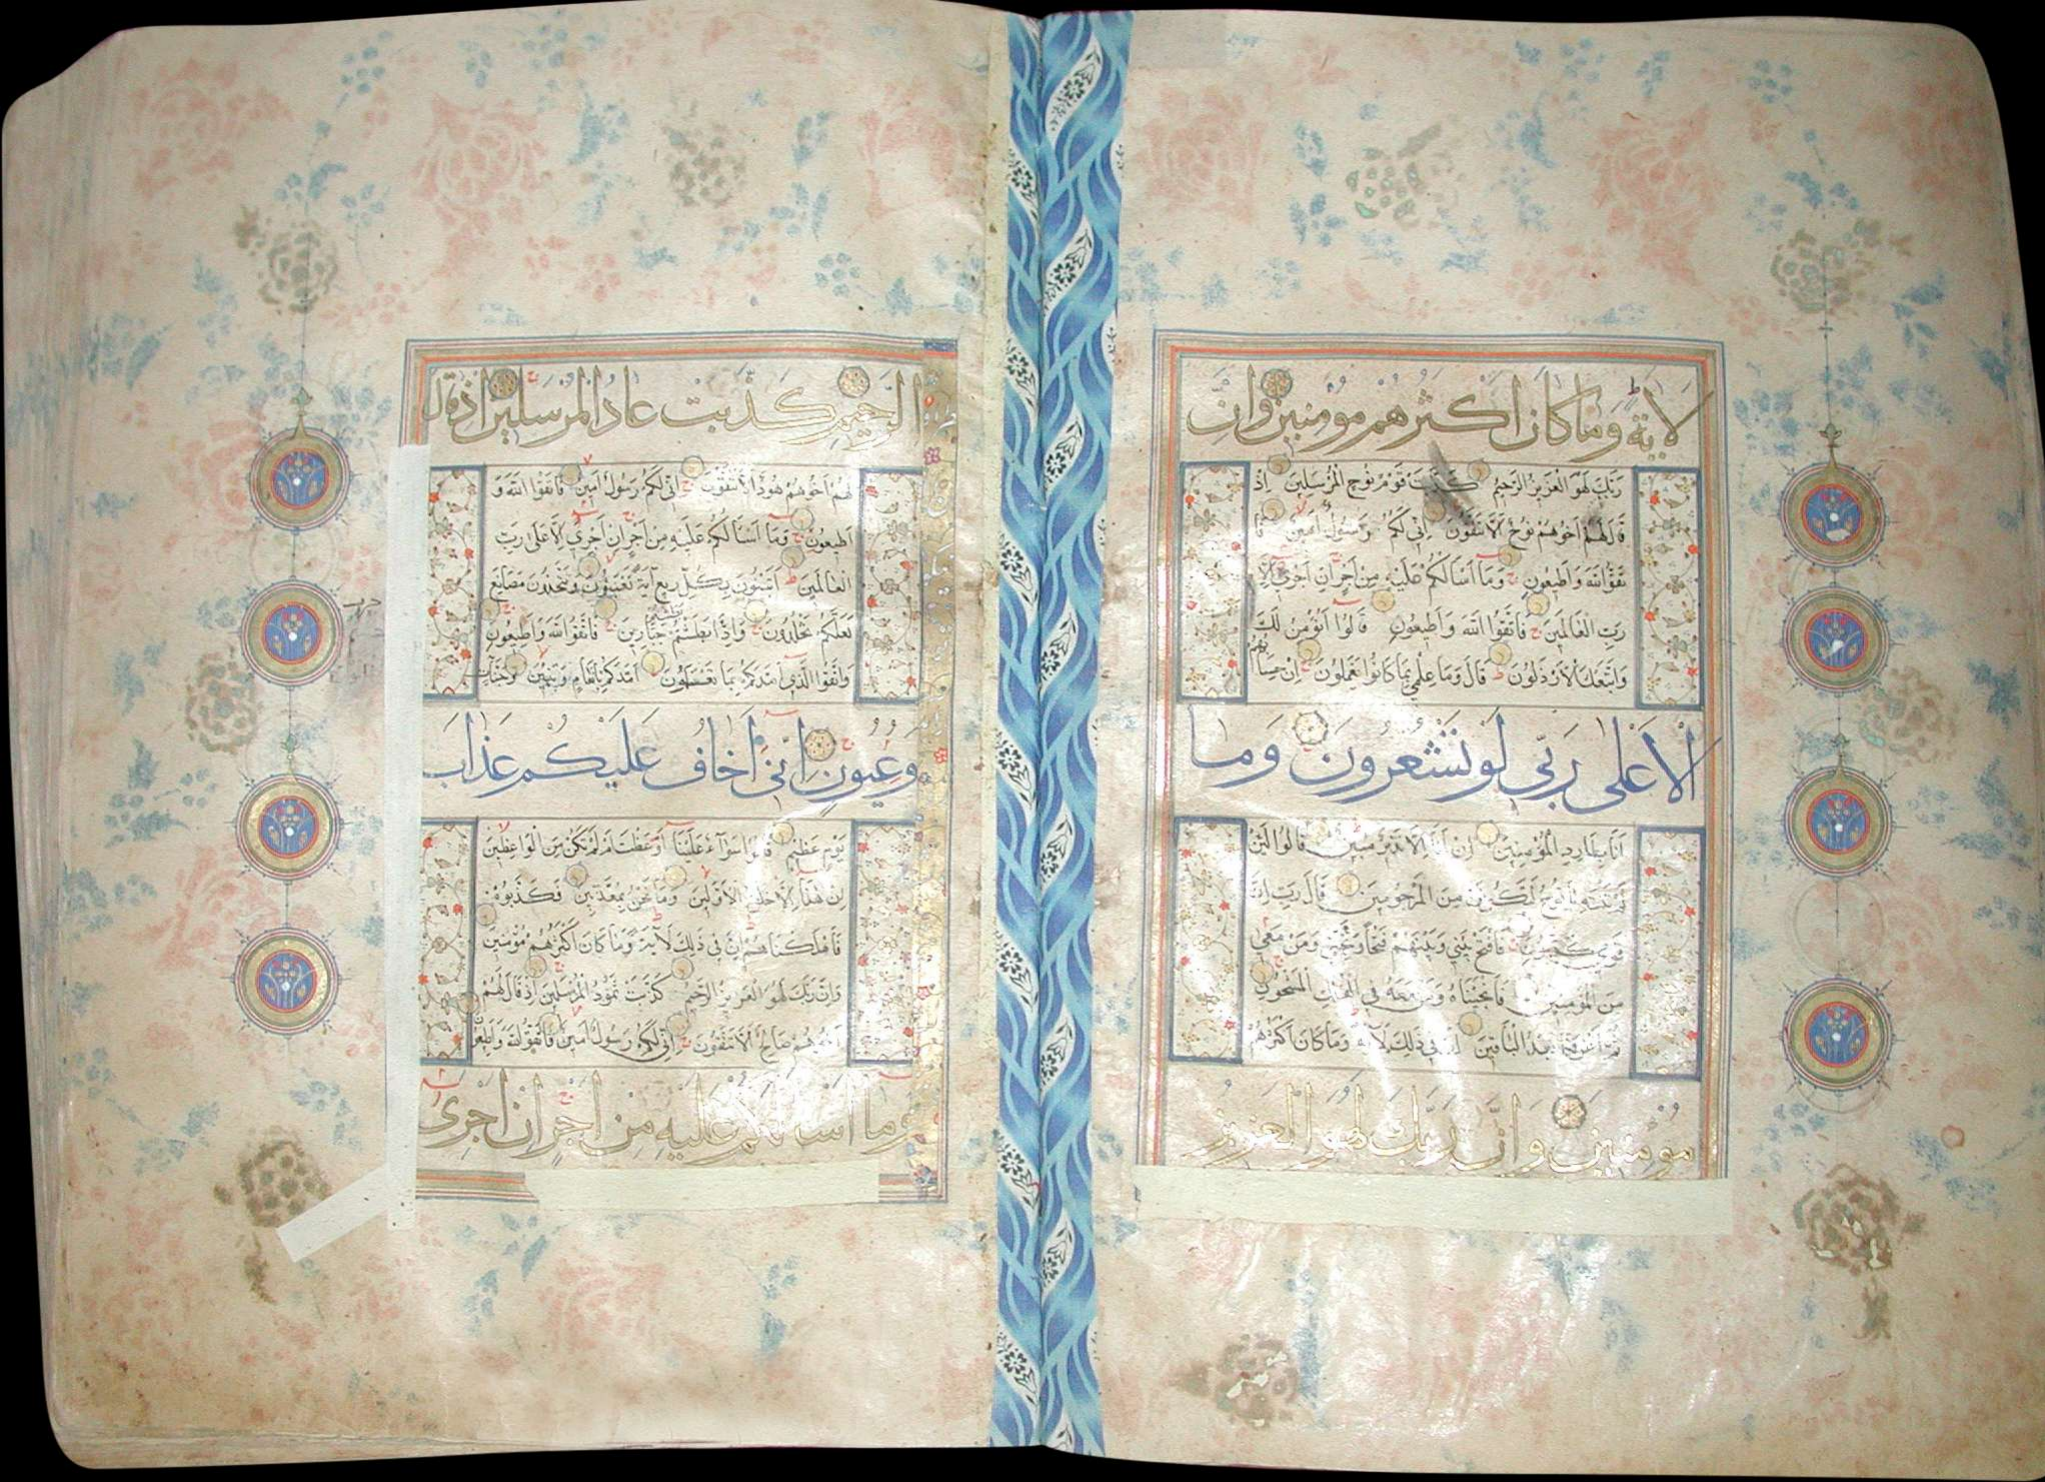 لاية وما كان اكثرهم مومنين وان
ربك لهو العزيز الرحيم كذبت قوم نوح المرسلين اذ
قال لهم اخوهم نوح الا تتقون اني لكم رسول امين فا
تقوا الله واطيعون وما اسالكم عليه من اجر ان اجري الا
رب العالمين فاتقوا الله واطيعون قالوا انؤمن لك
واتبعك الارذلون قال وما علمي بما كانوا يعملون ان حسابهم
الا على ربي لو تشعرون وما
انا بطارد المؤمنين ان انا الا نذير مبين قالوا لئن
لم تنته يا نوح لتكونن من المرجومين قال رب ان
قومي كذبون فافتح بيني وبينهم فتحا ونجني ومن معي
من المؤمنين فانجيناه ومن معه في الفلك المشحون
ثم اغرقنا بعد الباقين ان في ذلك لآية وما كان اكثرهم
مومنين وان ربك لهو العزيز
الرحيم كذبت عاد المرسلين اذ قال
لهم اخوهم هود الا تتقون اني لكم رسول امين فاتقوا الله و
اطيعون وما اسالكم عليه من اجر ان اجري الا على رب
العالمين اتبنون بكل ريع آية تعبثون وتتخذون مصانع
لعلكم تخلدون واذا بطشتم جبارين فاتقوا الله واطيعون
واتقوا الذي امدكم بما تعلمون امدكم بانعام وبنين وجنات
وعيون اني اخاف عليكم عذاب
يوم عظيم قالوا سواء علينا اوعظت ام لم تكن من الواعظين
ان هذا الا خلق الاولين وما نحن بمعذبين فكذبوه
فاهلكناهم ان في ذلك لآية وما كان اكثرهم مؤمنين
وان ربك لهو العزيز الرحيم كذبت ثمود المرسلين اذ قال لهم
اخوهم صالح الا تتقون اني لكم رسول امين فاتقوا الله واطيعون
وما اسالكم عليه من اجر ان اجري